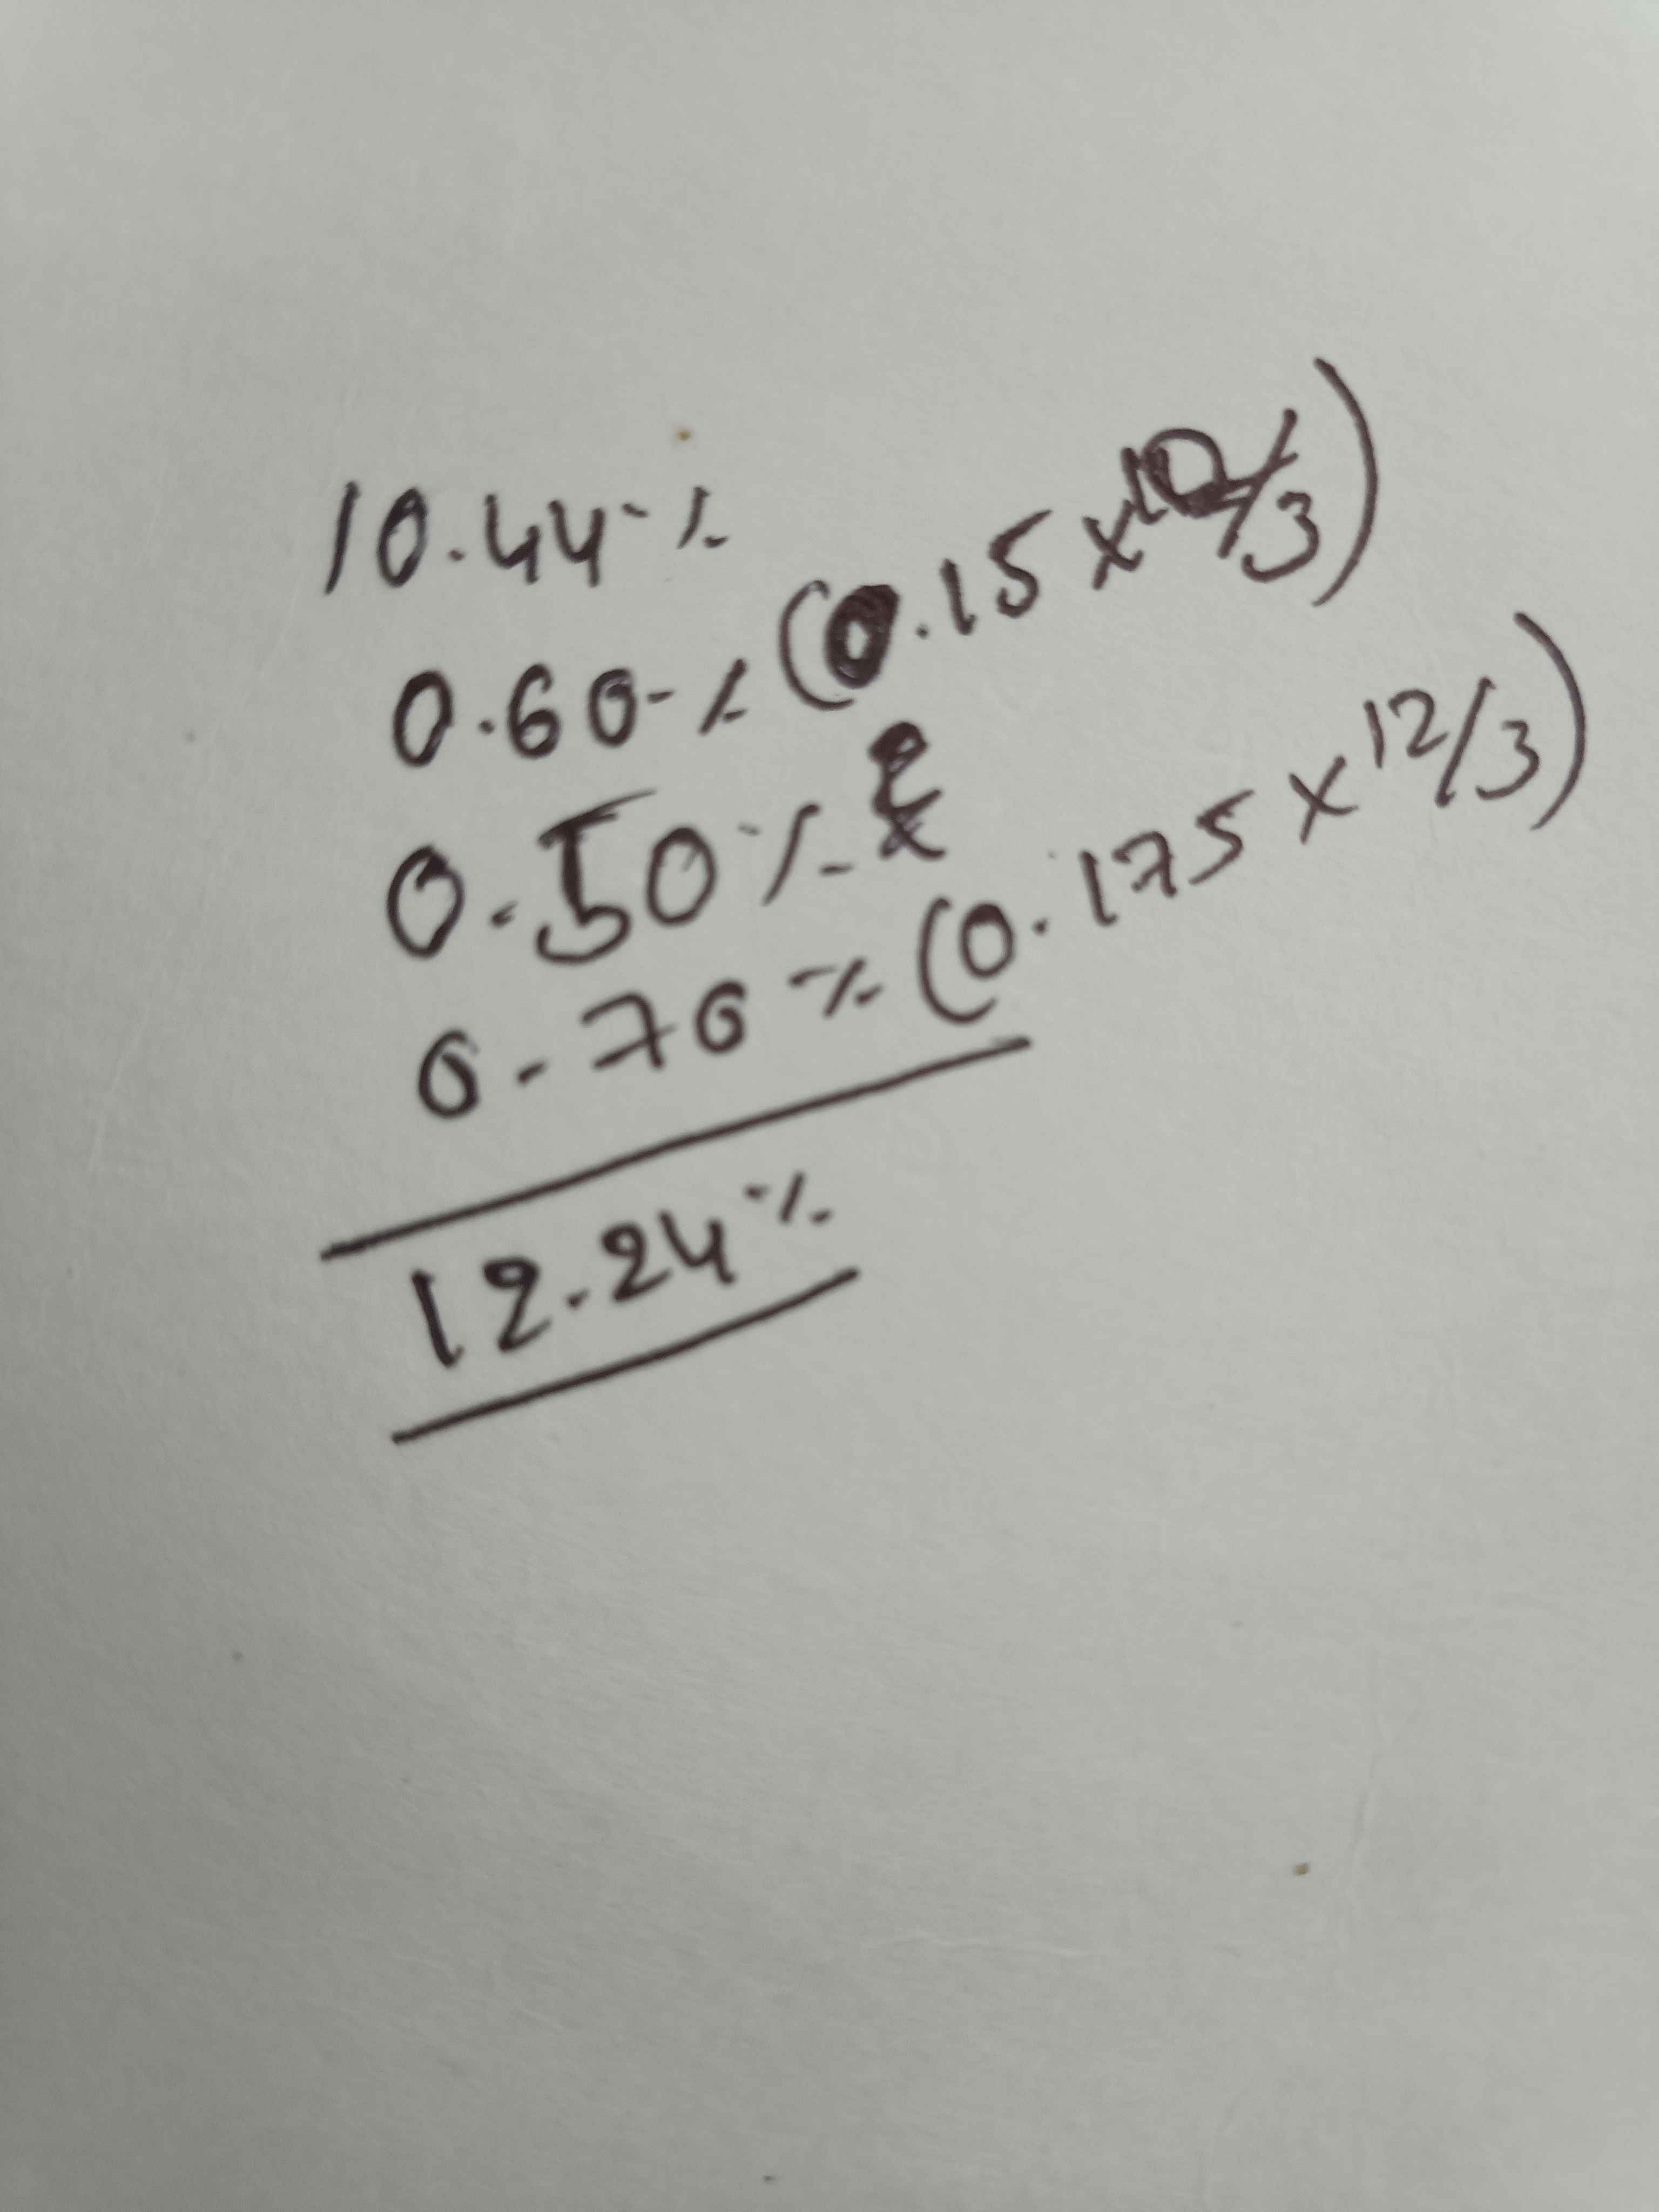 10.44%
0.60% (0.15 x 12/3)
0.50%
0.70% (0.175 x 12/3)
12.24%